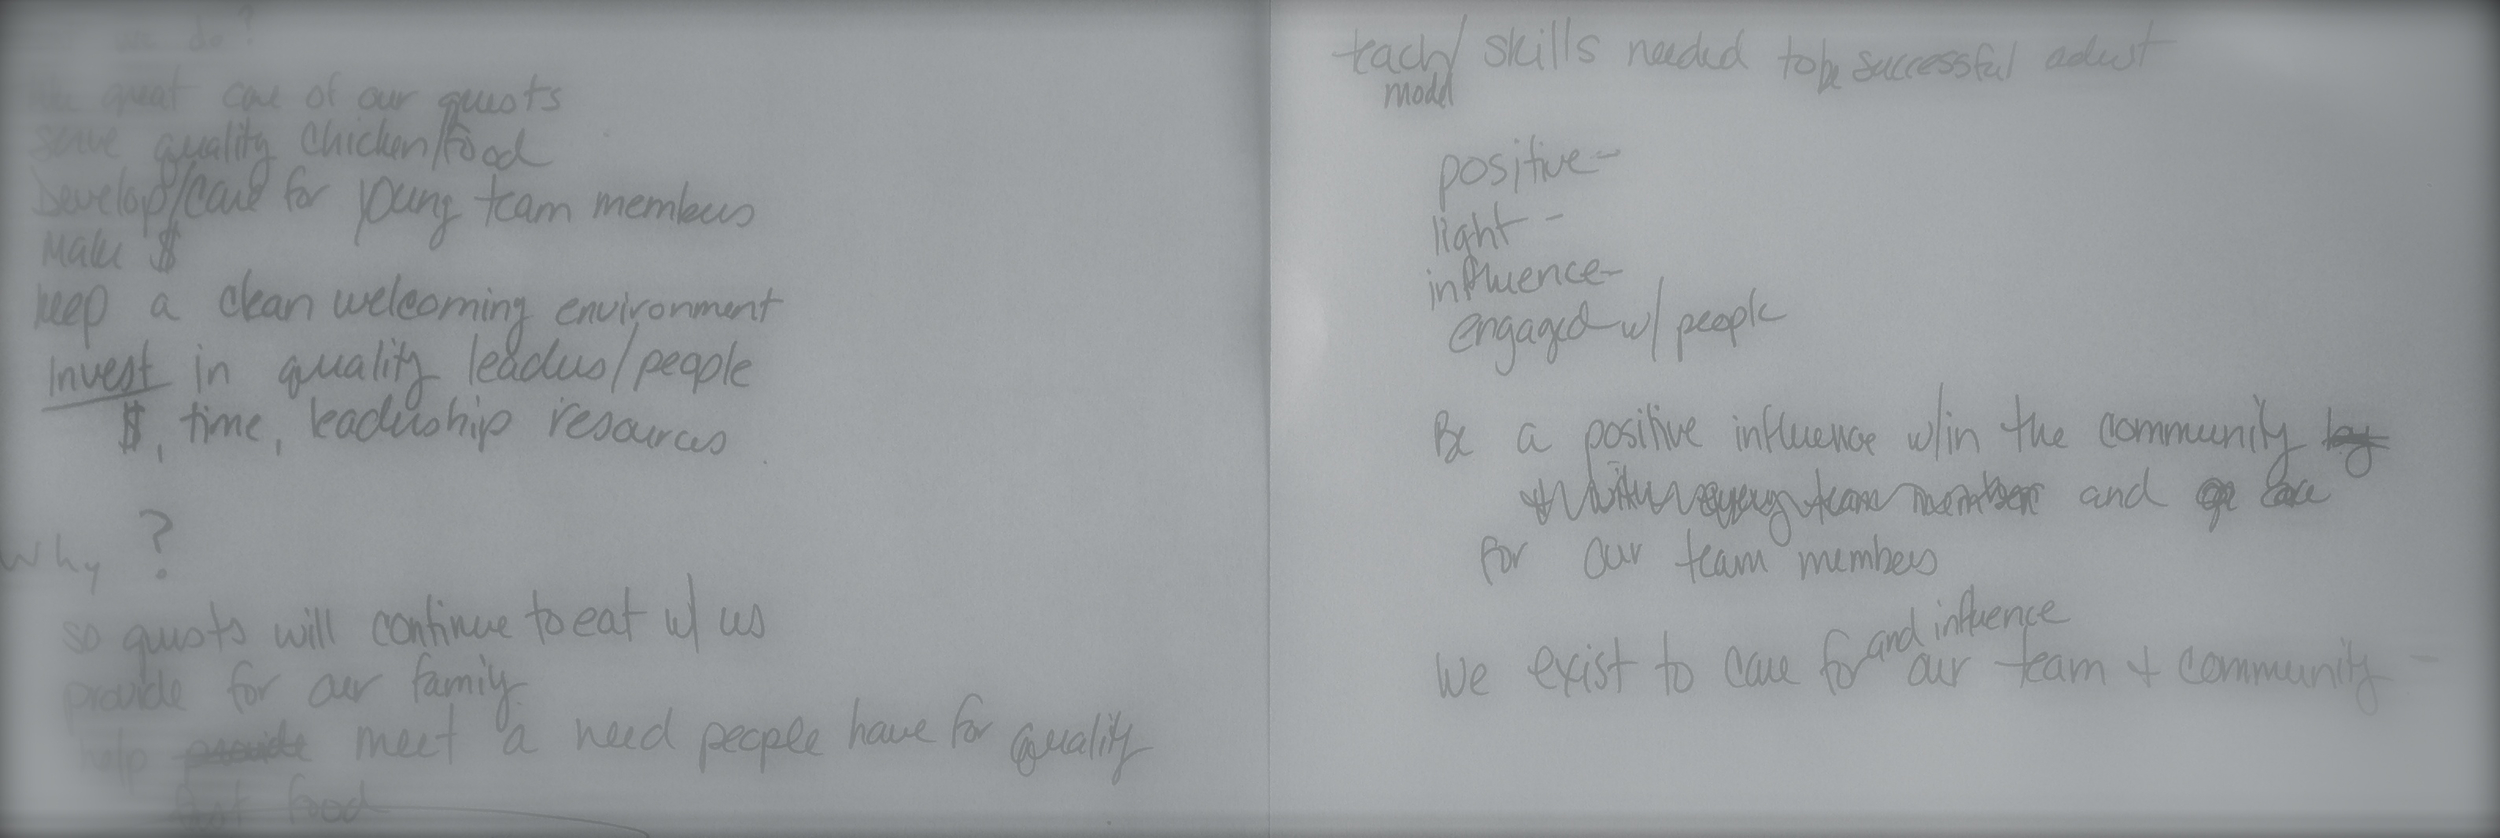 we do?
great care of our guests
serve quality chicken/food
Develop/care for young team members
Make $
keep a clean welcoming environment
Invest in quality leaders/people
$, time, leadership resources
Why?
so guests will continue to eat w/ us
provide for our family
help provide meet a need people have for quality
fast food
teach/ skills needed to be successful adust
model
positive-
light -
influence-
engaged w/ people
Be a positive influence w/in the community by
team member and care
for our team members
and influence
We exist to care for our team + community -